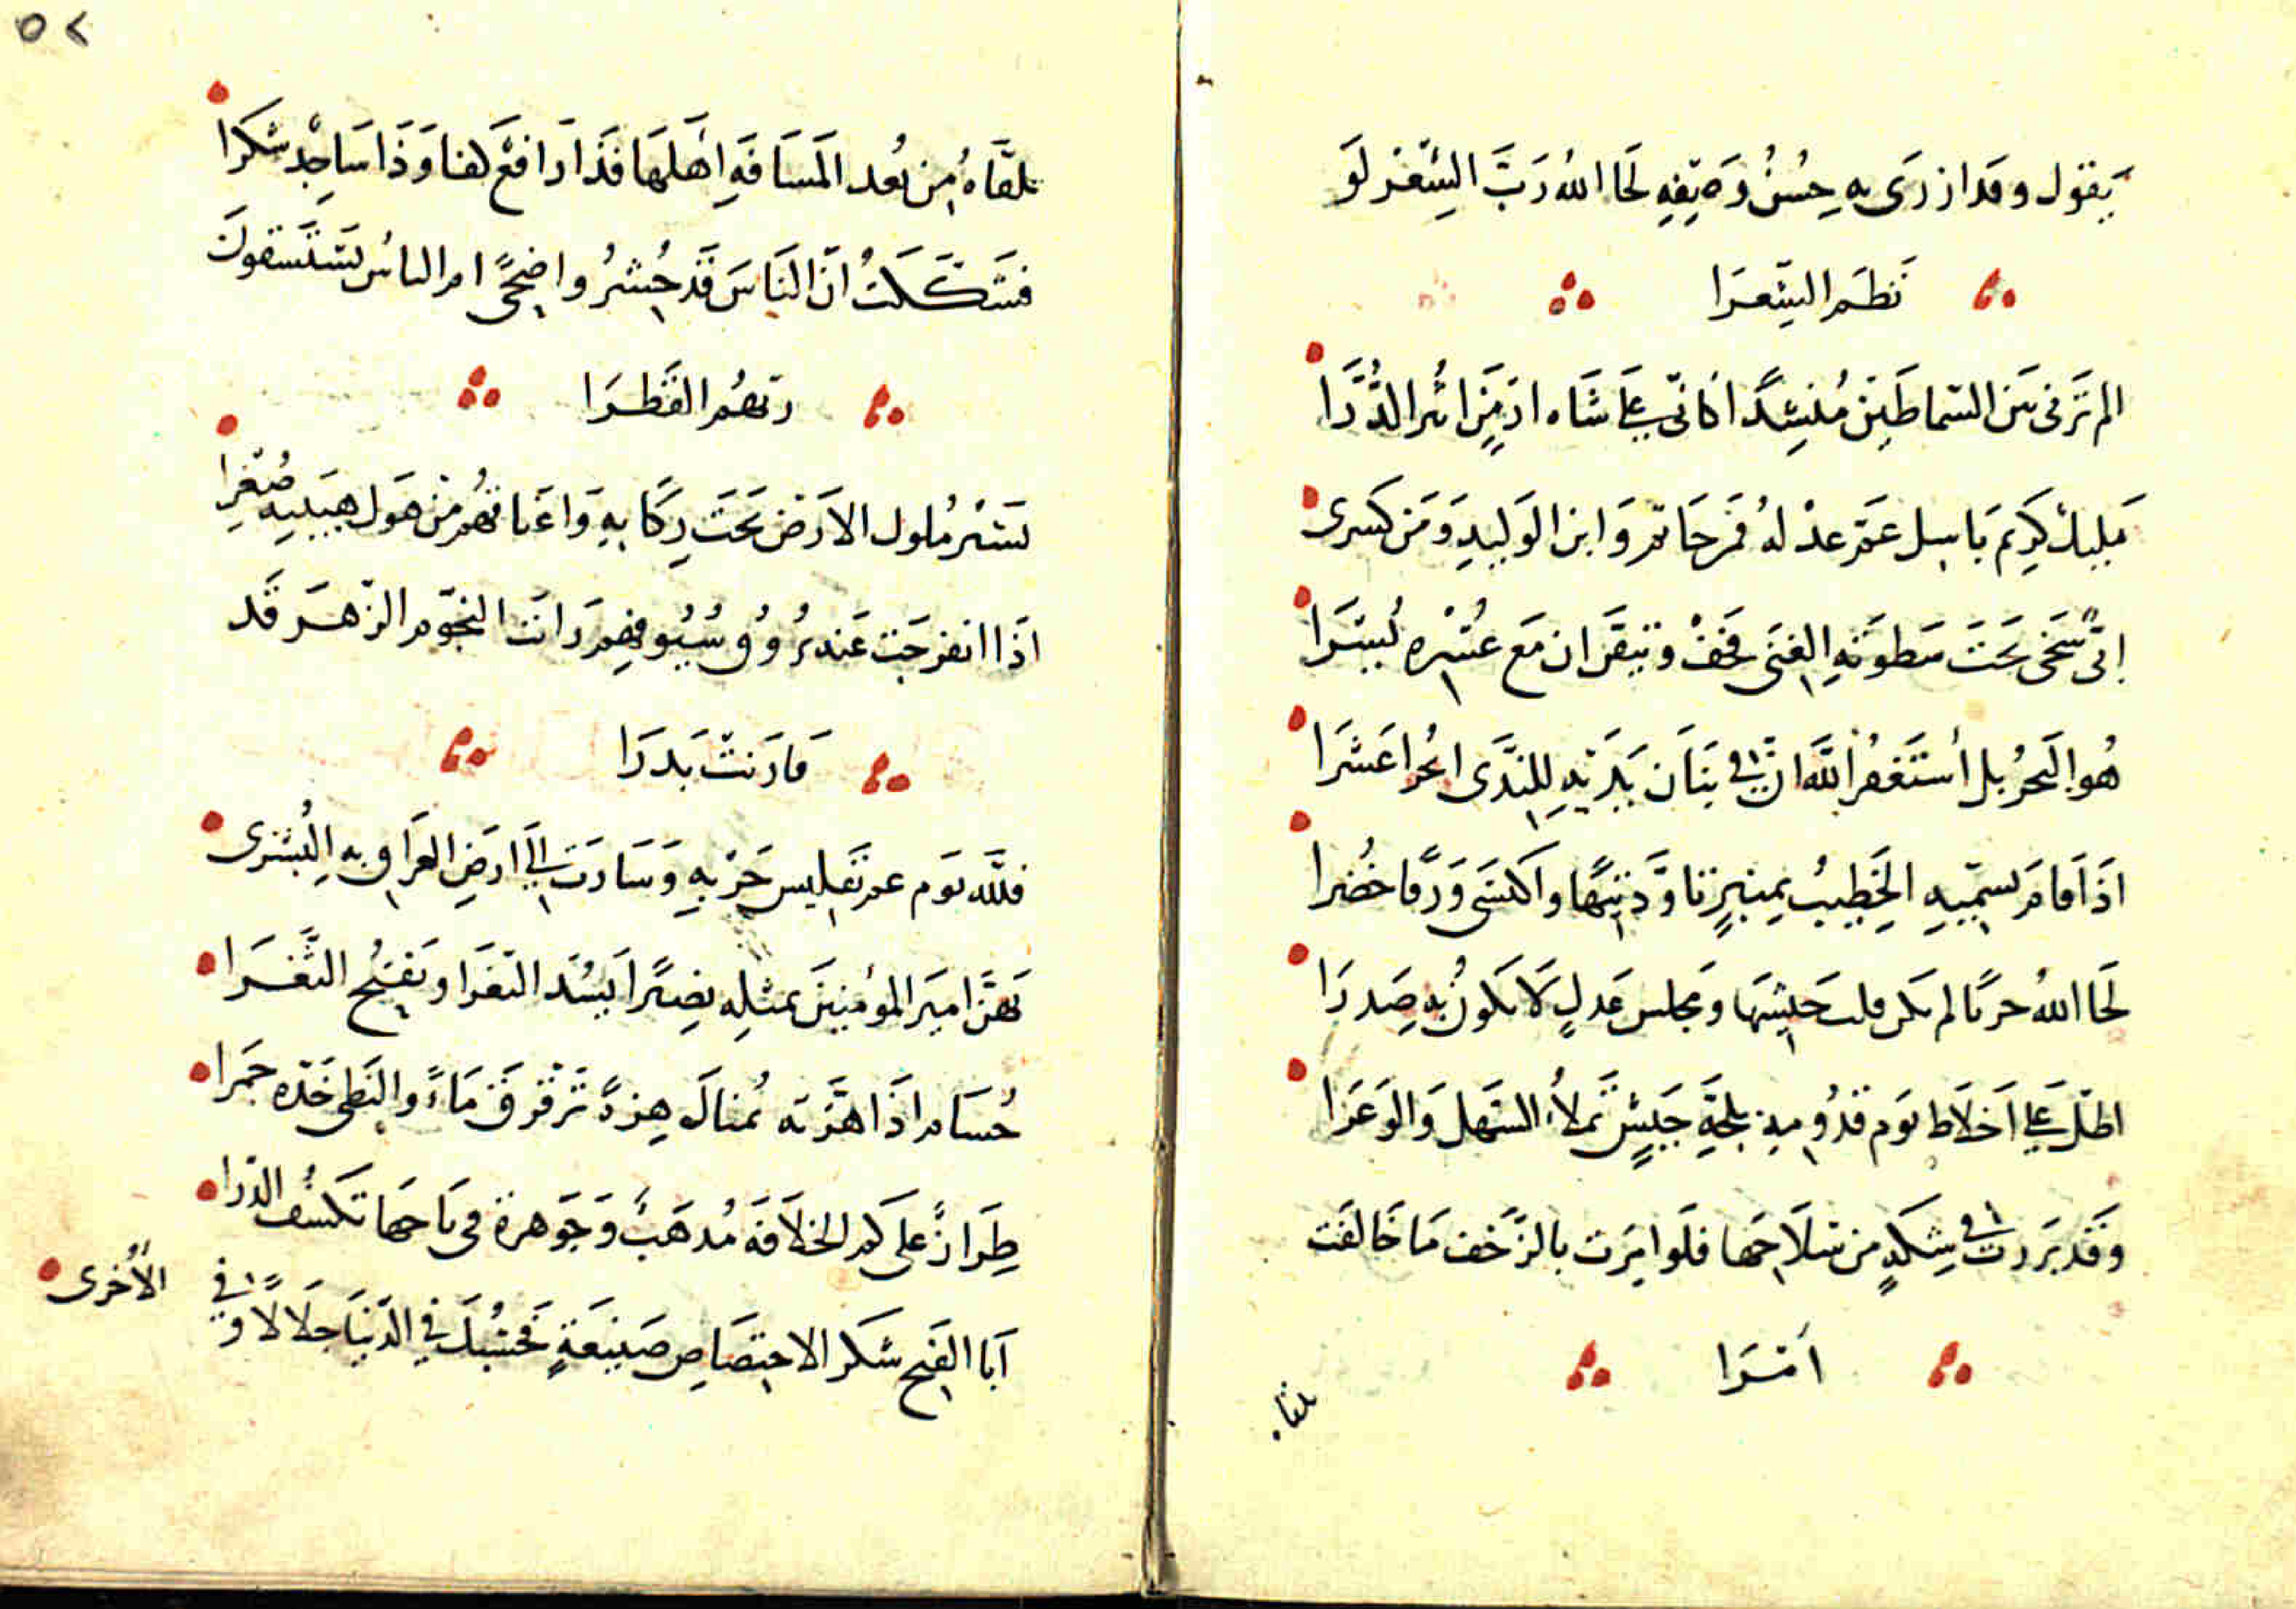 يَقول وقد ازرَى به حِسُنُ وَصفِهِ لَحَا اللهُ رَبَّ الشِّعْر لَو
نَظَم الشِّعرَا
الم تَرَنى بَين السّماطَين مُنشِدًا كانّى على شَاه ارمَن انثر الدُّرَّا
مَليك كرِيم بَاسِل عَمّ عدْلهُ فمَن حَاتم وَابن الوَليدِ وَمَن كسرى
تَحتَ سَطوَتهِ الغنَى فَخفْ وتيقَّن ان مَع عُسْره يُسرَا
هُو البَحرُ بل أستَغفرُ اللَّه انّ فى بنَان يَدَيْهِ للنّدَى ابحُرا عَشرَا
اذَا قَامَ يسمِّيهِ الخَطِيبُ بمِنبرٍ تاوَّد تيهًا واكتسَى وَرقًا خُضرا
لَحَا اللهُ حربًا لم يكن قلب جَيشِهَا ومجلس عَدلٍ لَا يكونُ به صَدرَا
اطلّ على اَخلَاط يوَم قدُومِه بلجّةِ جَيشٍ تَملأ السّهل وَالوَعرَا
وَقَد بَرَزت فى شِكّةٍ من سَلَاحِهَا فلَو امِرَت بالزّحف مَا خَالفَت
أمرَا
تلقاه
٥٢
تلقَّاهُ من بُعد المَسَافَةِ اهَلهَا فَذَا رَافعٌ كفا وَذَا سَاجِدٌ شكرَا
فشَكّكتُ انّ النَاسَ قَد حُشرُوا ضحًى ام الناسُ يَستَسقونَ
ربّهمُ القَطرَا
تسَيْر مُلوك الارَض تَحتَ رِكَابِهِ وَاعنَاقهُم من هَول هَيبتهِ صُغرا
اذَا انفرجَت عَنه بُرُوق سُيُوفهِم رَايت النجُوم الزّهرَ قَد
قَارَنتْ بَدرَا
فللَّه يوَم عمّ تفليس حَرْبهِ وَسَارَت الى ارضِ العراق به البُشرَى
تهَنّ اميَر المؤمنِينَ بمثلِهِ نصِيرًا يَسُدّ الثغرَا ويَفتح الثَّغرَا
حُسَام اذَا هَزّته يُمناكَ هِزةً تَرَقْرقَ مَاءً والتظى خَدّه جَمرا
طِرَازٌ على كمّ الخلَافَة مُذهَبٌ وَجَوهرة فى تَاجهَا تكسُف الدُرا
اَبَا الفتح شكرا لاختصَاصِ صَنيعَةٍ فحَسْبكَ فى الدّنيَا جلَالًا وفى الأخرى